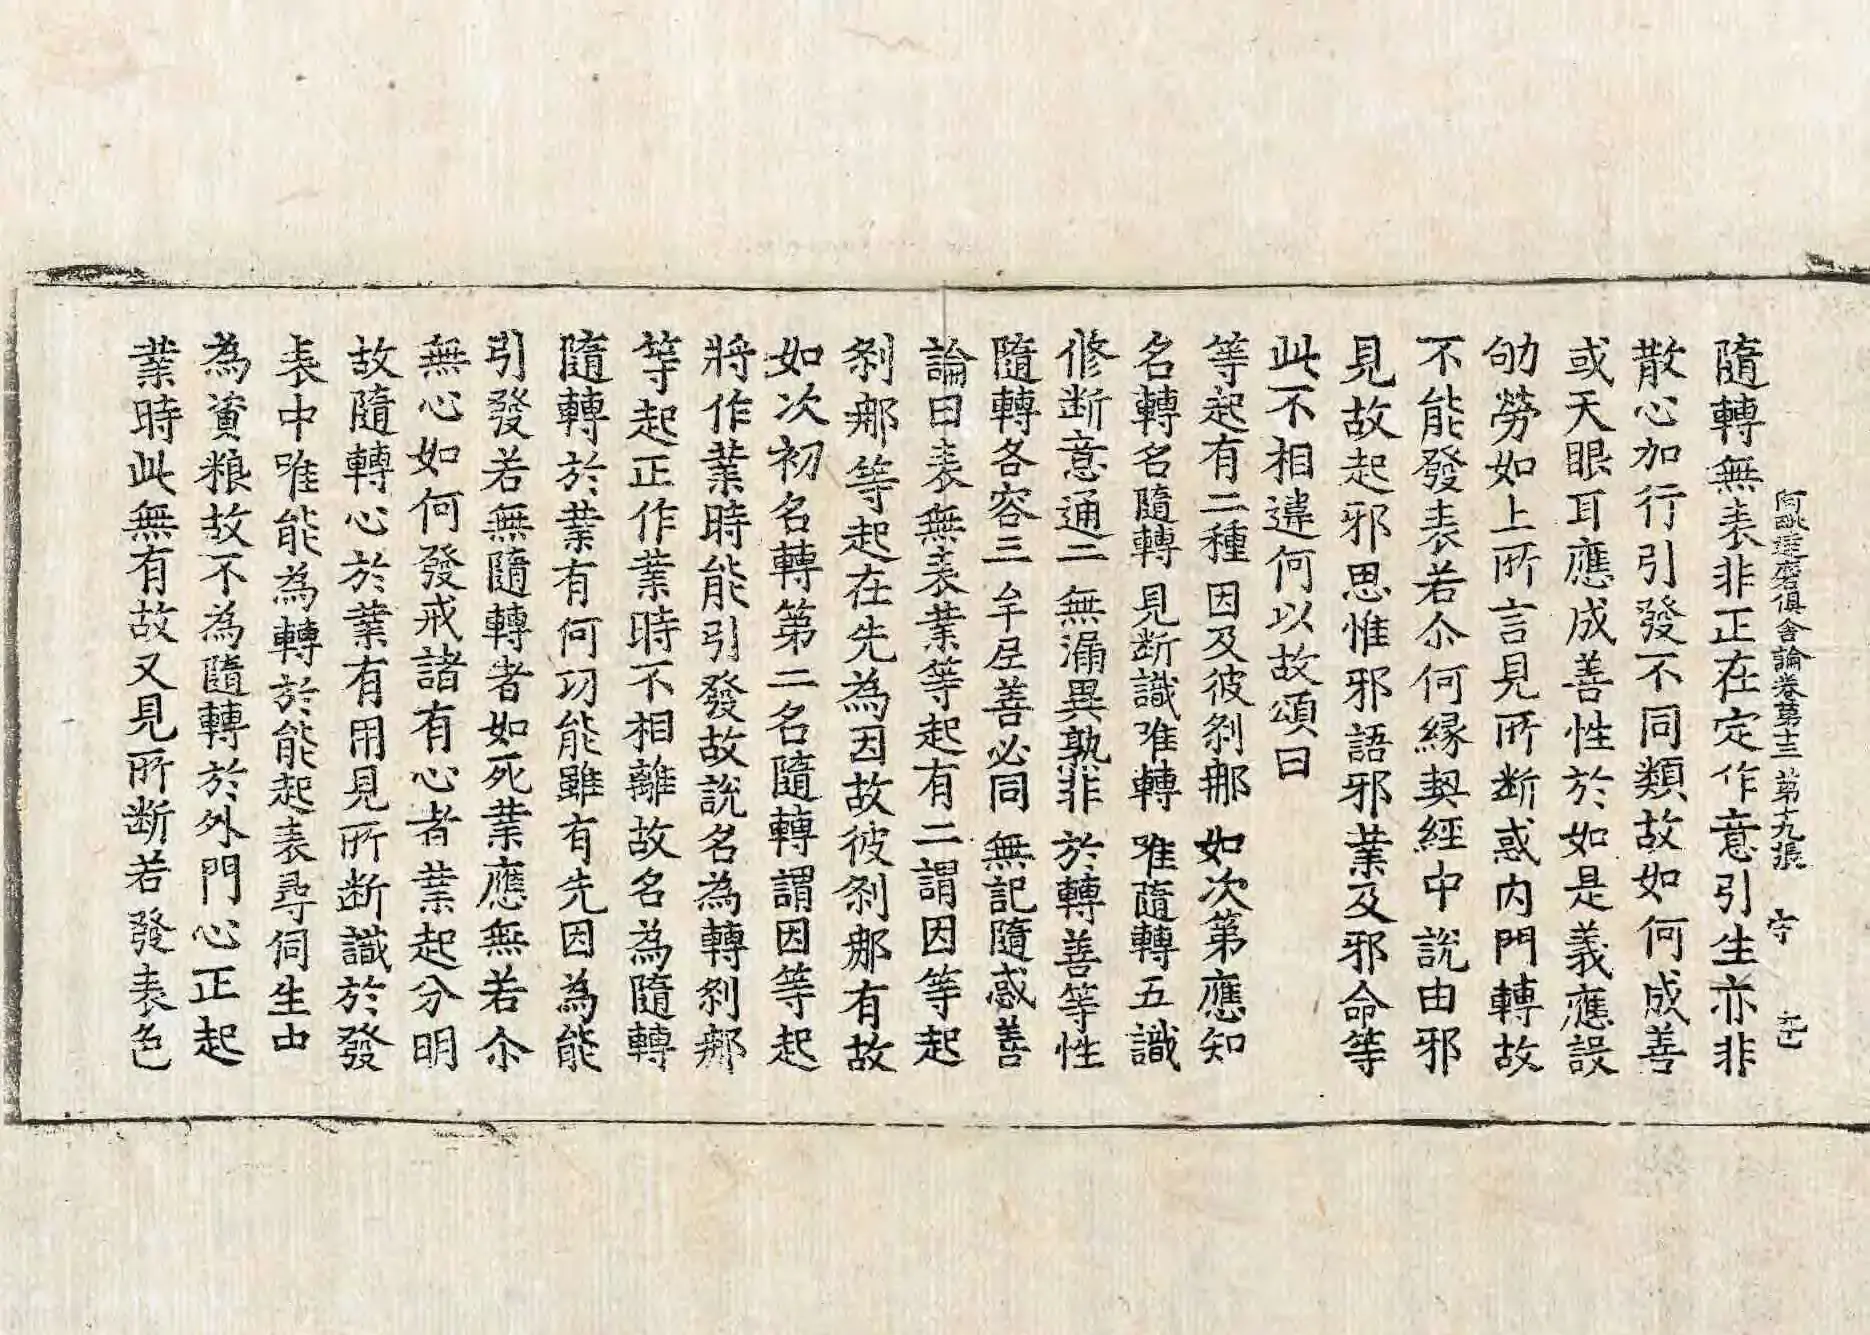 阿毗達磨俱舍論卷第十三 第九張 守
隨轉無表非正在定作意引生亦非
散心加行引發不同類故如何成善
或天眼耳應成善性於如是義應設
劬勞如上所言見所断惑內門轉故
不能發表若尒何緣契經中說由邪
見故起邪思惟邪語邪業及邪命等
此不相違何以故頌曰
等起有二種 因及彼剎那 如次第應知
名轉名隨轉 見断識唯轉 唯隨轉五識
修断意通二 無漏異熟非 於轉善等性
隨轉各容三 牟尼善必同 無記隨或善
論曰表無表業等起有二謂因等起
剎那等起在先為因故彼剎那有故
如次初名轉第二名隨轉謂因等起
將作業時能引發故說名為轉剎那
等起正作業時不相離故名為隨轉
隨轉於業有何功能雖有先因為能
引發若無隨轉者如死業應無若尒
無心如何發戒諸有心者業起分明
故隨轉心於業有用見所断識於發
表中唯能為轉於能起表尋伺生中
為資粮故不為隨轉於外門心正起
業時此無有故又見所断若發表色